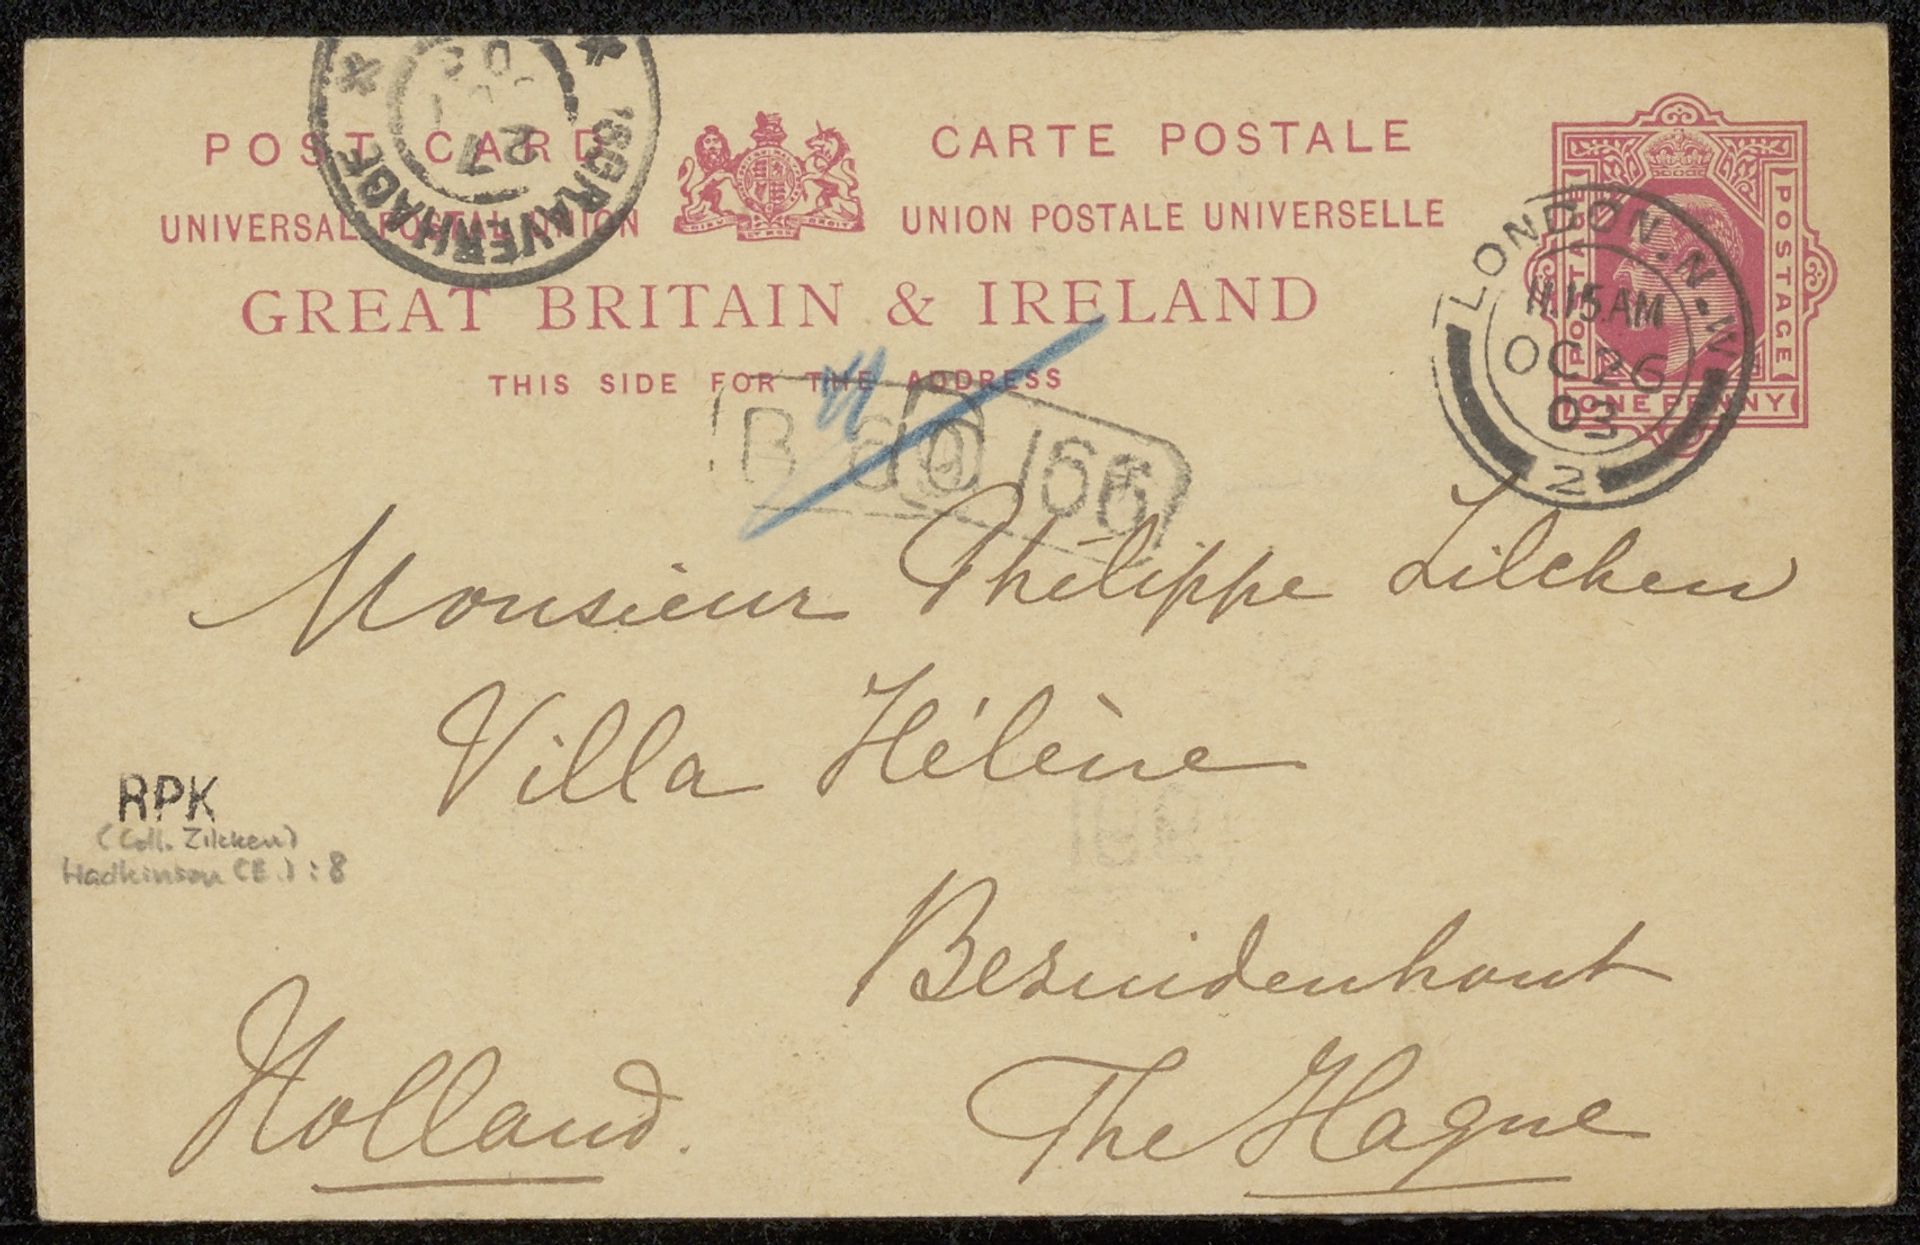 POST CARD
CARTE POSTALE
UNIVERSAL POSTAL UNION
UNION POSTALE UNIVERSELLE
GREAT BRITAIN & IRELAND
THIS SIDE FOR THE ADDRESS
'SGRAVENHAGE
27
03
POSTAGE POSTAGE
ONE PENNY
LONDON.N.W
11.15.AM
OC 26
03
2
166
Monsieur Philippe Zilcken
Villa Hélène
Bezuidenhout
The Hague
Holland.
RPK
(Coll. Zilcken)
Hadkinson (E.) : 8